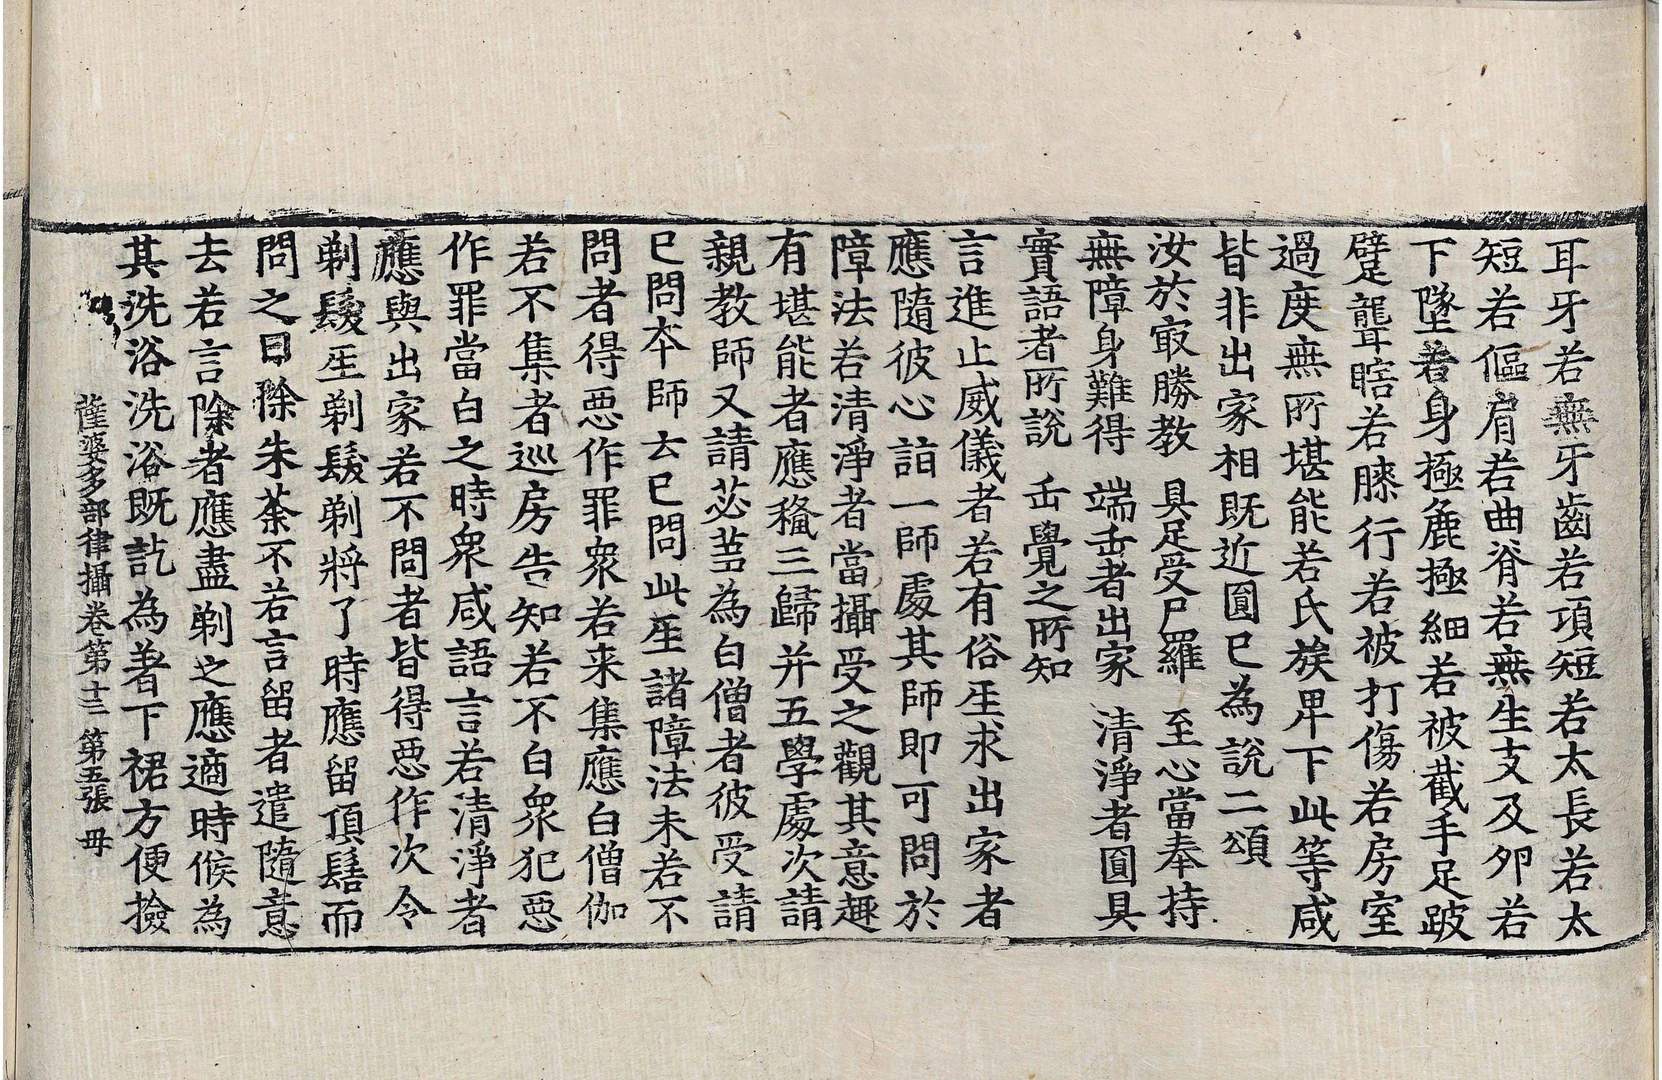 耳牙若無牙齒若項短若太長若太
短若傴肩若曲脊若無生支及夘若
下墜若身極麁極細若被截手足跛
躄聾瞎若膝行若被打傷若房室
過度無所堪能若氏族卑下此等咸
皆非出家相既近圓已為說二頌
汝於㝡勝教 具足受尸羅 至心當奉持
無障身難得 端𠙺者出家 清淨者圓具
實語者所說 𠙺覺之所知
言進止威儀者若有俗𤯔求出家者
應隨彼心詣一師處其師即可問於
障法若清淨者當攝受之觀其意趣
有堪能者應稱三歸并五學處次請
親教師又請苾芻為白僧者彼受請
已問本師云已問此𤯔諸障法未若不
問者得惡作罪眾若来集應白僧伽
若不集者巡房告知若不白眾犯惡
作罪當白之時眾咸語言若清淨者
應與出家若不問者皆得惡作次令
剃髮𤯔剃髮剃將了時應留頂髻而
問之曰除朱荼不若言留者遣隨意
去若言除者應盡剃之應適時候為
其洗浴洗浴既訖為著下裙方便撿
薩婆多部律攝卷第十三 第五張 毋